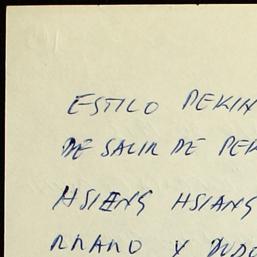 ESTILO PEKIN
DE SALIR DE PEK
HSIENG HSIANG
Y DUDO